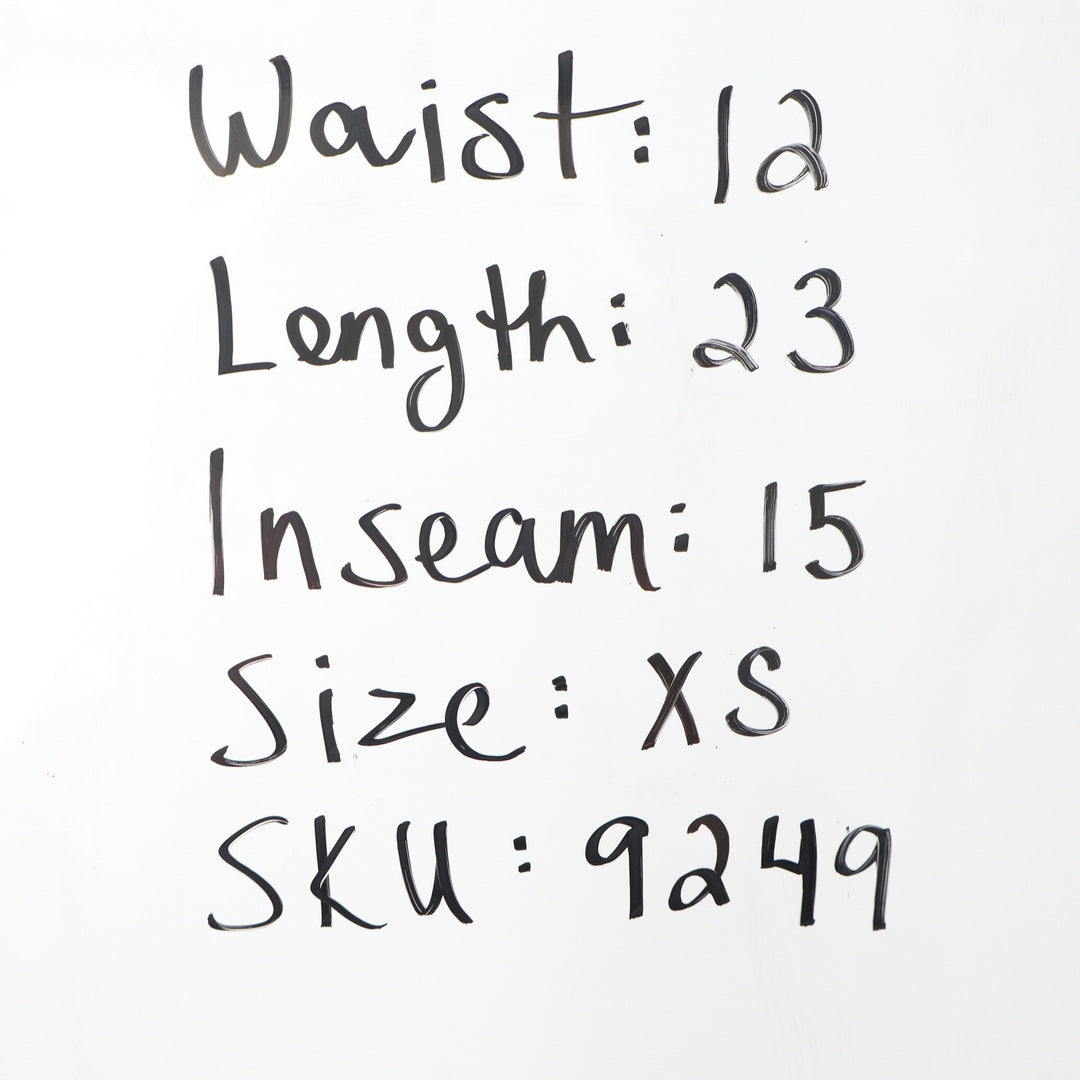 Waist: 12
Length: 23
Inseam: 15
Size: XS
SKU: 9249